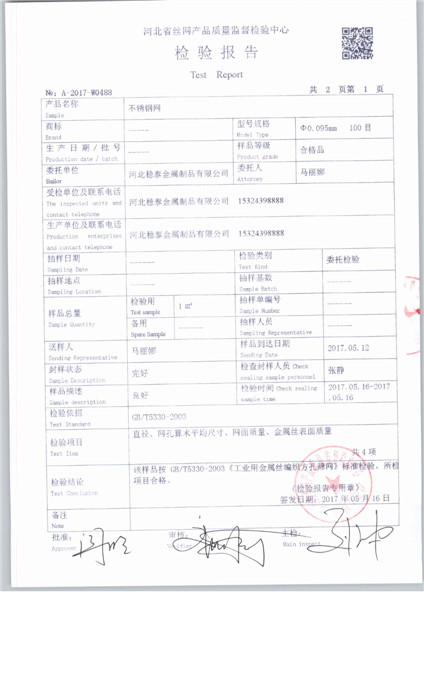 河北省丝网产品质量监督检验中心
检验报告
Test Report
№: A-2017-W0488
共 2 页第 1 页
产品名称
Sample
不锈钢网
商标
Brand
型号规格
Model Type
Φ0.095mm 100目
生产日期/批号
Production date / batch
样品等级
Product grade
合格品
委托单位
Bailor
河北稳泰金属制品有限公司
委托人
Attorney
马丽娜
受检单位及联系电话
The inspected units and
contact telephone
河北稳泰金属制品有限公司 15324398888
生产单位及联系电话
Production enterprises
and contact telephone
河北稳泰金属制品有限公司 15324398888
抽样日期
Sampling Date
检验类别
Test Kind
委托检验
抽样地点
Sampling Location
抽样基数
Sample Batch
样品总量
Sample Quantity
检验用
Test sample
1 ㎡
抽样单编号
Sample Number
备用
Spare Sample
抽样人员
Sampling Representative
送样人
Sending Representative
马丽娜
样品到达日期
Sending Date
2017.05.12
封样状态
Sample Description
完好
检查封样人员 Check
sealing sample personnel
张静
样品描述
Sample description
良好
检验时间 Check sealing
sample time
2017.05.16-2017
.05.16
检验依据
Test Standard
GB/T5330-2003
检验项目
Test Item
直径、网孔算术平均尺寸、网面质量、金属丝表面质量
共 4 项
检验结论
Test Conclusion
该样品按 GB/T5330-2003《工业用金属丝编织方孔筛网》标准检验，所检
项目合格。
(检验报告专用章)
签发日期：2017 年 05 月 16 日
备注
Note
批准:
Approver
审核:
Verifier
主检:
Main inspect